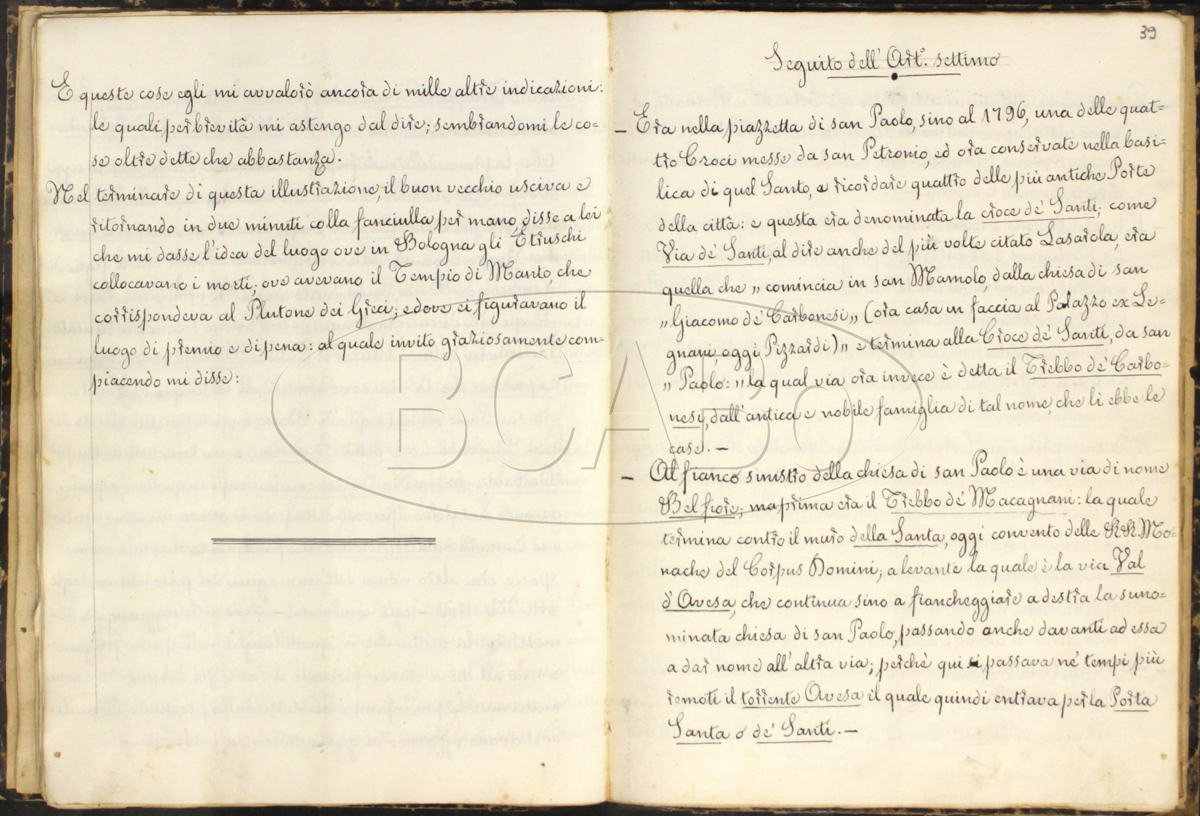 E queste cose egli mi avvalorò ancora di mille altre indicazioni:
le quali per brevità mi astengo dal dire; sembrandomi le co=
se oltre dette che abbastanza.
Nel terminare di questa illustrazione, il buon vecchio usciva e
ritornando in due minuti colla fanciulla per mano, disse a lei
che mi dasse l'idea del luogo ove in Bologna gli Etruschi
collocavano i morti; ove avevano il Tempio di Manto, che
corrispondeva al Plutone dei Greci; e dove ci figuravano il
luogo di premio e di pena: al quale invito graziosamente com=
piacendo mi disse:
39
Seguito dell' Art.º settimo
– Era nella piazzetta di san Paolo, sino al 1796, una delle quat=
tro Croci messe da san Petronio, ed ora conservate nella basi=
lica di quel Santo, a ricordare quattro delle più antiche Porte
della città: e questa era denominata la croce de' Santi; come
Via de' Santi, al dire anche del più volte citato Lasarola, era
quella che „ comincia in san Mamolo, dalla chiesa di san
„ Giacomo de' Carbonesi „ (ora casa in faccia al Palazzo ex Le=
gnani, oggi Pizzardi) „ e termina alla Croce de' Santi, da san
„ Paolo: „ la qual via ora invece è detta il Trebbo de' Carbo=
nesi, dall'antica e nobile famiglia di tal nome, che lì ebbe le
case. –
– Al fianco sinistro della chiesa di san Paolo è una via di nome
Belfiore; ma prima era il Trebbo de' Macagnani: la quale
termina contro il muro della Santa, oggi convento delle RR. Mo=
nache del Corpus Domini; a levante la quale è la via Val
d'Avesa, che continua sino a fiancheggiare a destra la suno=
minata chiesa di san Paolo, passando anche davanti ad essa
a dar nome all' altra via; perchè qui passava ne' tempi più
remoti il torrente Avesa il quale quindi entrava per la Porta
Santa o de' Santi. –
BCABo